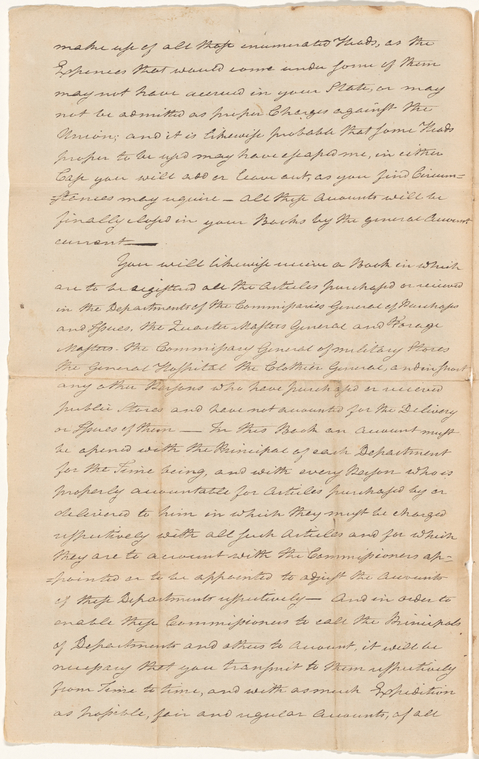 make use of all those enumerated Heads, as the
Expences that would come under some of them
may not have accrued in your State, or may
not be admitted as proper Charges against the
Union; and it is likewise probable that some Heads
proper to be used may have escaped me, in either
Case you will add or leave out, as you find Circum=
stances may require — all these Accounts will be
finally closed in your Books by the general Account
current —
You will likewise receive a Book in which
are to be registered all the Articles purchased or received
in the Departments of the Commissaries General of Purchases
and Issues, the Quarter Masters General and Forage
Masters. the Commissary General of military Stores
the General Hospital the Clothier General, and in short
any other Persons who have purchased or received
public Stores and have not accounted for the Delivery
or Issues of them — In this Book an Account must
be opened with the Principal of each Department
for the Time being, and with every Person who is
properly accountable for Articles purchased by or
delivered to him in which they must be charged
respectively with all such Articles and for which
they are to account with the Commissioners ap=
=pointed or to be appointed to adjust the Accounts
of these Departments respectively — And in order to
enable these Commissioners to call the Principals
of Departments and others to Account, it will be
necessary that you transmit to them respectively
from Time to time, and with as much Expedition
as possible, fair and regular Accounts, of all